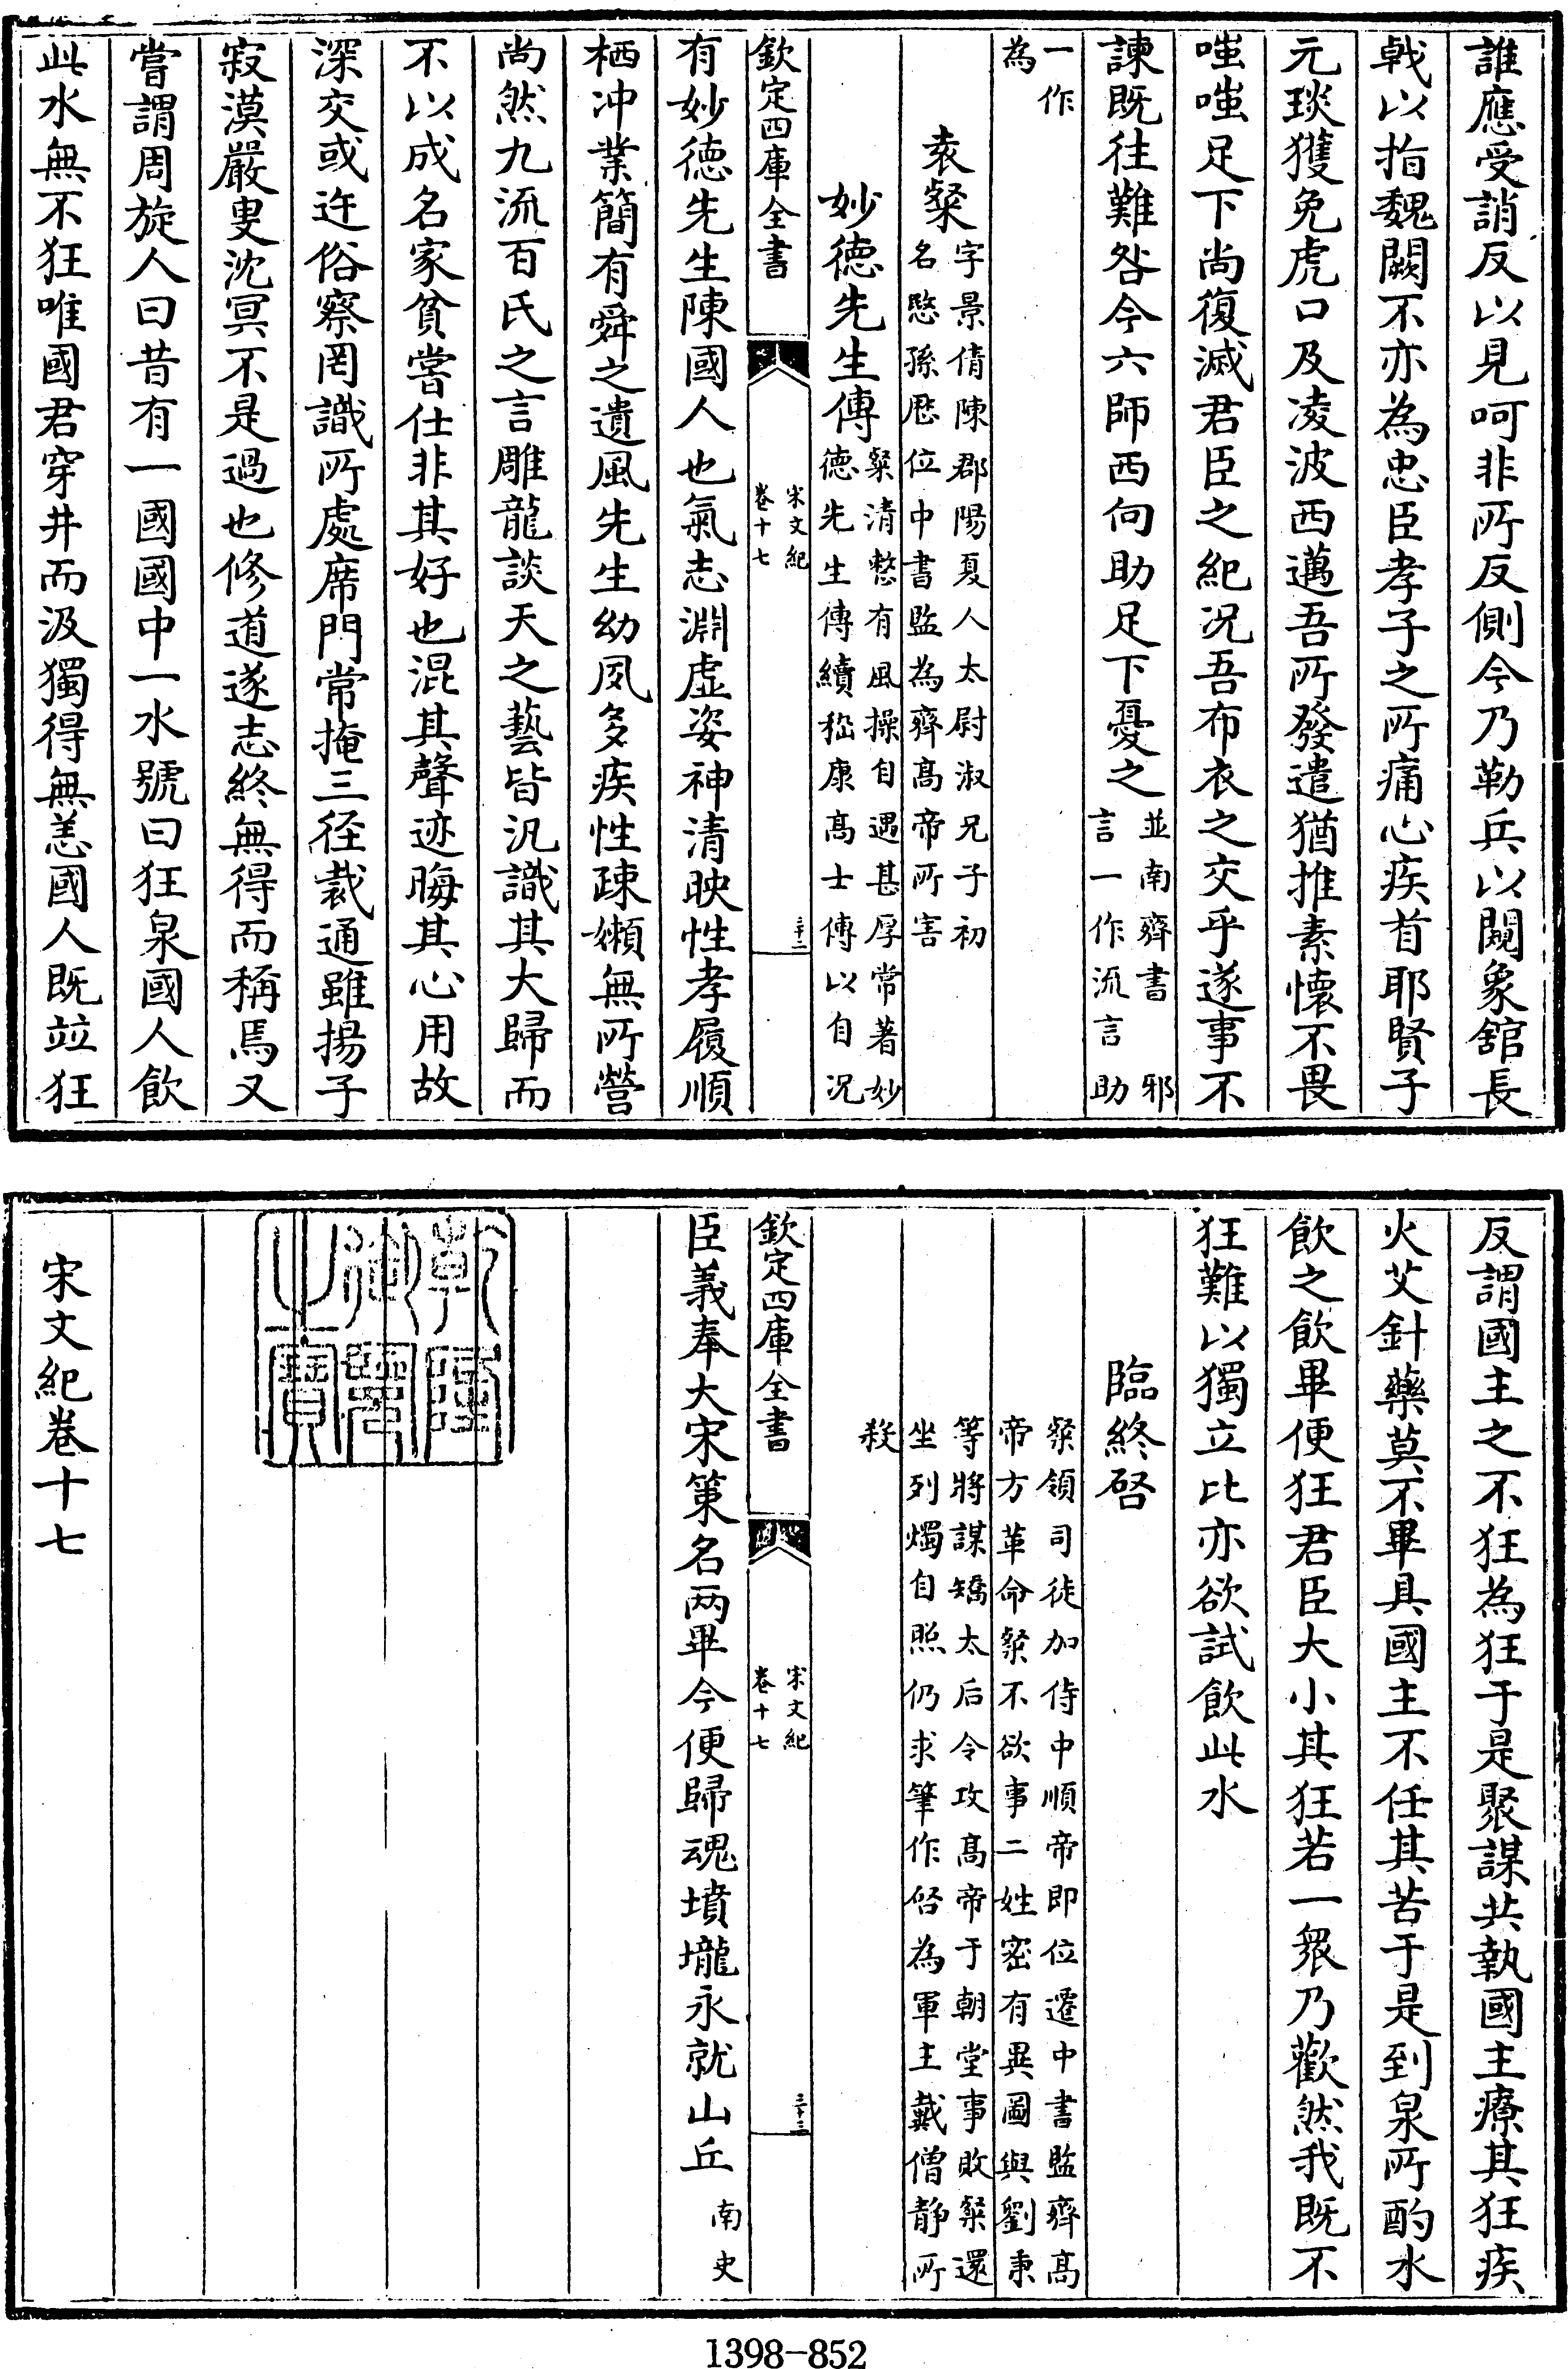 誰應受誚反以見呵非所反側今乃勒兵以闚象舘長
戟以指魏闕不亦為忠臣孝子之所痛心疾首耶賢子
元琰獲免虎口及凌波西邁吾所發遣猶推素懷不畏
嗤嗤足下尚復滅君臣之紀况吾布衣之交乎遂事不
諫既往難咎今六師西向助足下憂之並南齊書 邪
言一作流言 助
一作
為
袁粲字景倩陳郡陽夏人太尉淑兄子初
名愍孫歴位中書監為齊髙帝所害
妙徳先生傳粲清整有風操自遇甚厚常著妙
徳先生傳續嵇康髙士傳以自况
欽定四庫全書
宋文紀
卷十七
三十二
有妙徳先生陳國人也氣志淵虚姿神清映性孝履順
栖冲業簡有舜之遺風先生幼夙多疾性疎嬾無所營
尚然九流百氏之言雕龍談天之藝皆汎識其大歸而
不以成名家貧嘗仕非其好也混其聲迹晦其心用故
深交或迕俗察罔識所處席門常掩三徑裁通雖揚子
寂漠嚴叟沈冥不是過也修道遂志終無得而稱焉又
嘗謂周旋人曰昔有一國國中一水號曰狂泉國人飲
此水無不狂唯國君穿井而汲獨得無恙國人既竝狂
反謂國主之不狂為狂于是聚謀共執國主療其狂疾
火艾針藥莫不畢具國主不任其苦于是到泉所酌水
飲之飲畢便狂君臣大小其狂若一衆乃歡然我既不
狂難以獨立比亦欲試飲此水
臨終啓
粲領司徒加侍中順帝即位遷中書監齊髙
帝方革命粲不欲事二姓密有異圖與劉秉
等將謀矯太后令攻髙帝于朝堂事敗粲還
坐列燭自照仍求筆作啓為軍主戴僧静所
殺
欽定四庫全書
宋文紀
卷十七
三十三
臣義奉大宋策名两畢今便歸魂墳壠永就山丘南史
乾隆
御覽
之寶
宋文紀卷十七
1398-852